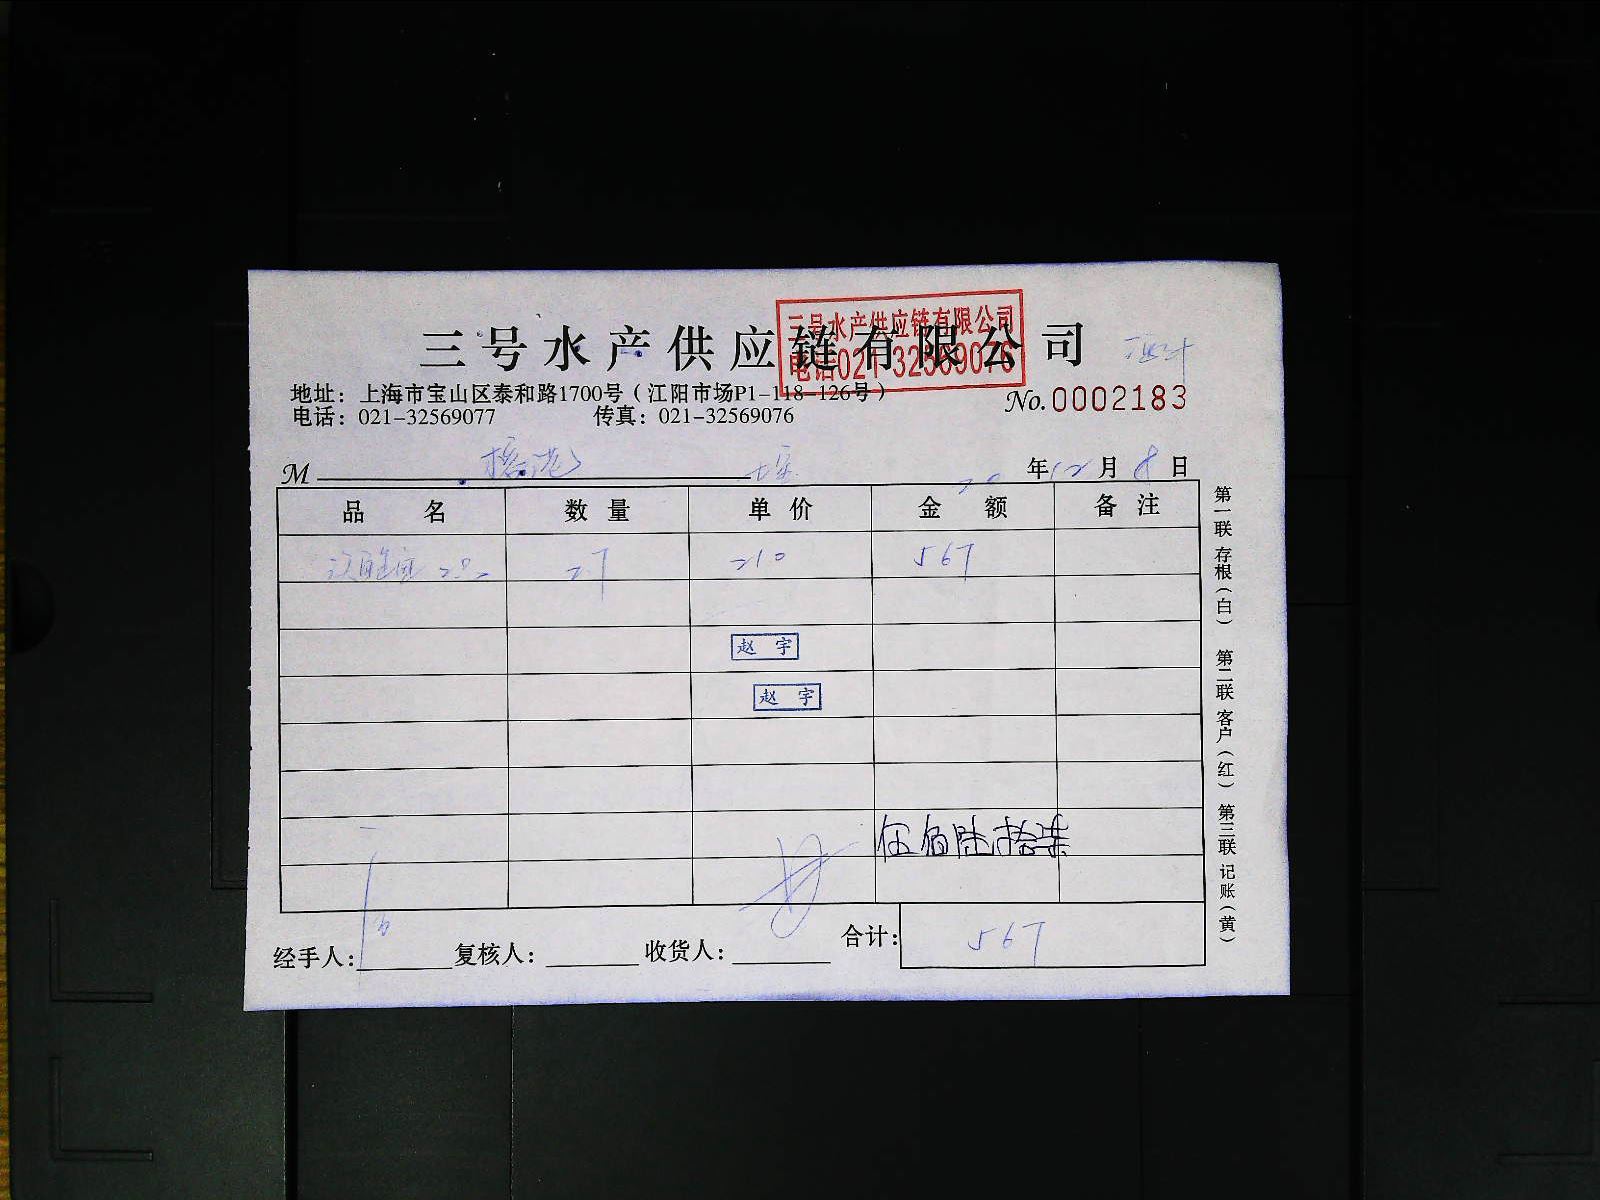 三号水产供应链有限公司
三号水产供应链有限公司
电话021-32569076
地址：上海市宝山区泰和路1700号（江阳市场P1-118-126号）
电话：021-32569077 传真：021-32569076
No.0002183
M 20年12月8日
品名 数量 单价 金额 备注
2.7 210 567
赵宇
赵宇
伍佰陆拾柒
合计：567
经手人： 复核人： 收货人：
第一联 存根（白） 第二联 客户（红） 第三联 记账（黄）